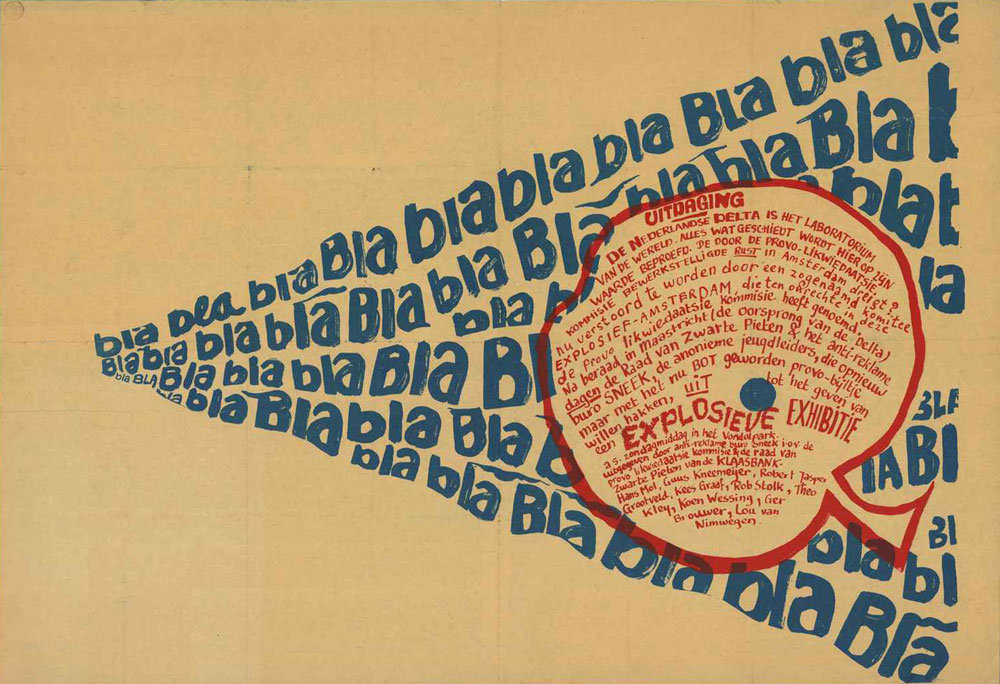 bla bla bla Bla bla bla bla Bla bla bla
Bla bla bla bla Bla bla bla Bla bla bla Bla
bla bla
bla BLA Bla bla bla bla Bla Bl
bla Bla bla bla Bla
bla bla bla Bla bla bla Bla
bla bl
UITDAGING
DE NEDERLANDSE DELTA IS HET LABORATORIUM
VAN DE WERELD. ALLES WAT GESCHIEDT WORDT HIER OP ZIJN
WAARDE BEPROEFD. DE DOOR DE PROVO-LIKWIEDAATSIE-
KOMMISIE BEWERKSTELLIGDE RUST in Amsterdam dreigt
nu verstoord te worden door een zogenaamd komitee
EXPLOSIEF-AMSTERDAM, die ten onrechte in deze
de provo likwiedaatsie kommisie heeft genoemd.
Na beraad in Maastricht (de oorsprong van de Delta)
dagen de Raad van Zwarte Pieten & het anti-reklame
buro SNEEK, de anonieme jeugdleiders, die opnieuw
maar met het nu BOT geworden provo-bijltje
willen hakken, UIT tot het geven van
een EXPLOSIEVE EXHIBITIE
a.s. zondagmiddag in het Vondelpark.
uitgegeven door anti-reklame buro Sneek i.o.v. de
provo likwiedaatsie kommisie & de raad van
Zwarte Pieten van de KLAASBANK.
Hans Mol, Guus Kneemeijer, Robert Jasper
Grootveld, Kees Graaf, Rob Stolk, Theo
Kley, Koen Wessing, Ger
Brouwer, Lou van
Nimwegen.